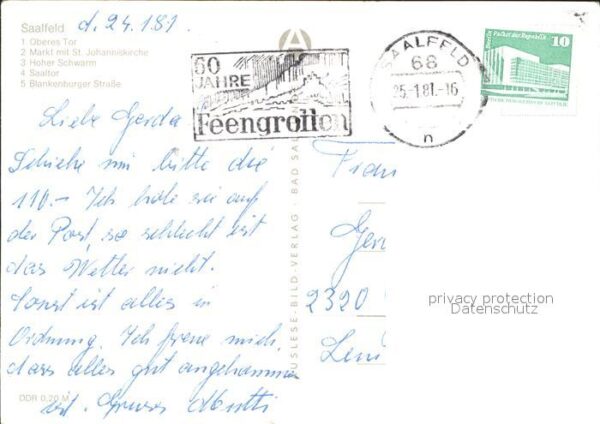 Saalfeld d. 24.1.81.
1 Oberes Tor
2 Markt mit St. Johanniskirche
3 Hoher Schwarm
4 Saaltor
5 Blankenburger Straße
60
JAHRE
Feengrotten
SAALFELD
68
25-1.81.-16
n
Palast der Republik
10
Liebe Gerda
Schicke mir bitte die
110.- Ich hole sie auf
der Post, so schlecht ist
das Wetter nicht.
Sonst ist alles in
Ordnung. Ich freue mich,
dass alles gut angekommen
ist. Gruss Mutti
DDR 0,20 M
AUSLESE-BILD-VERLAG · BAD SAL
Frau
Ger
2320
privacy protection
Datenschutz